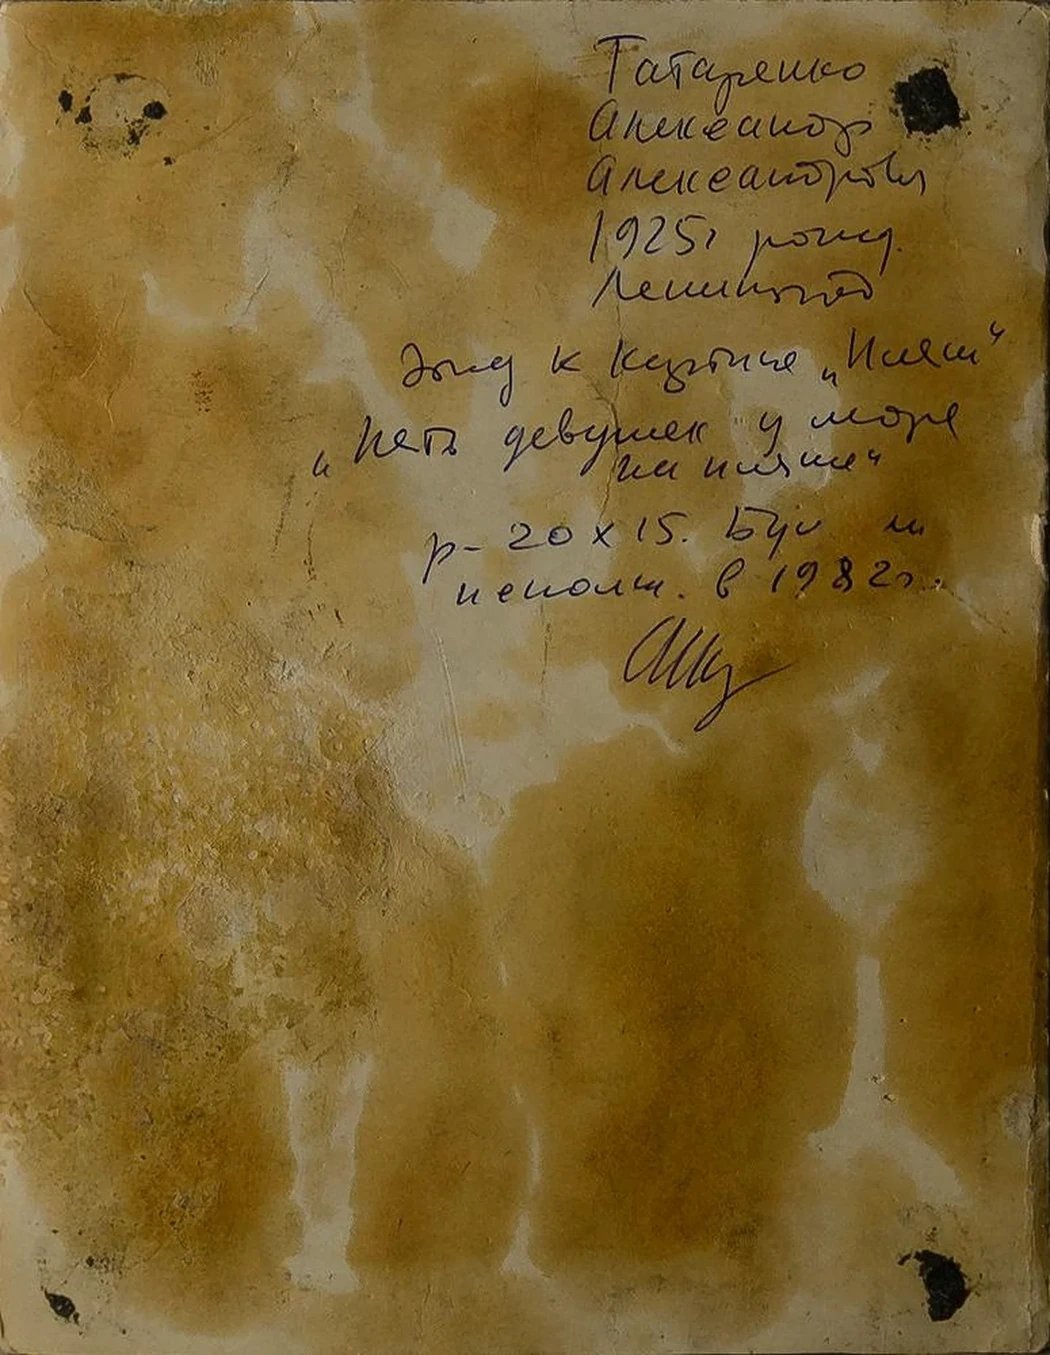 Татаренко
Александр
Александрович
1925г рожд.
Ленинград
Этюд к картине „Пляж“
„Пять девушек у моря
на пляже“
р- 20х15. Бум м
исполн. в 1982г.